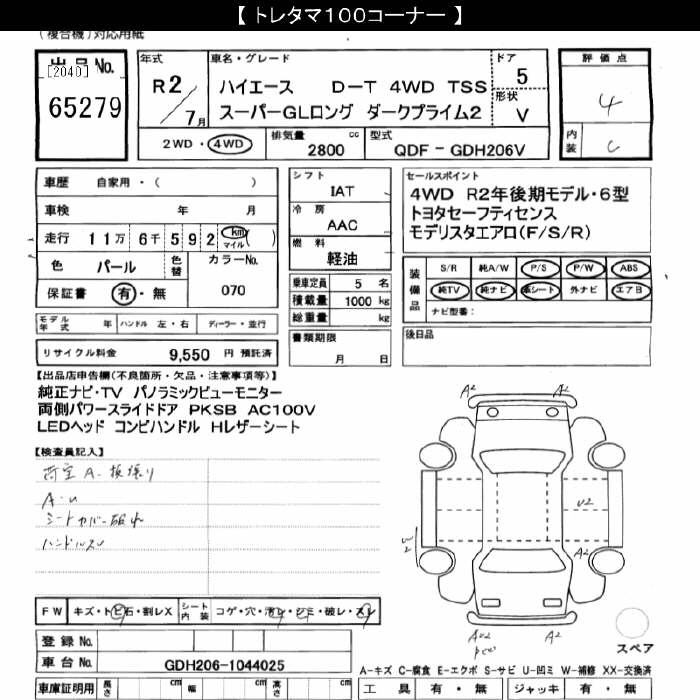 【 トレタマ100コーナー 】
(複合機)対応用紙
出品No.
[2040]
65279
年式
R2/7月
車名・グレード
ハイエース D-T 4WD TSS
スーパーGLロング ダークプライム2
ドア
5
形状
V
評価点
4
内装
C
2WD・4WD
排気量
2800 cc
型式
QDF - GDH206V
車歴 自家用・( )
車検 年 月
走行 11万 6千 592 km マイル ( )
色 パール 色替 カラーNo.
保証書 有・無 070
シフト
IAT
冷房
AAC
燃料
軽油
乗車定員 5 名
積載量 1000 kg
総重量 kg
書類期限
月 日
セールスポイント
4WD R2年後期モデル・6型
トヨタセーフティセンス
モデリスタエアロ(F/S/R)
装備品
S/R 純A/W P/S P/W ABS
純TV 純ナビ 革シート 外ナビ エアB
ナビ型番:
後日品
モデル年式 年 ハンドル 左・右 ディーラー・並行
リサイクル料金 9,550 円 預託済
【出品店申告欄(不良箇所・欠品・注意事項等)】
純正ナビ・TV パノラミックビューモニター
両側パワースライドドア PKSB AC100V
LEDヘッド コンビハンドル Hレザーシート
【検査員記入】
荷室A・板張り
A・U
シートカバー破れ
ハンドルスレ
A2 A2
A2
U2
W2
A2
A2
スペア
FW キズ・トビ石・割レX シート内装 コゲ・穴・汚レ・シミ・破レ・スレ
登録No.
車台No. GDH206-1044025
A-キズ C-腐食 E-エクボ S-サビ U-凹ミ W-補修 XX-交換済
車庫証明用 長さ cm 幅 cm 高さ cm
工具 有・無 ジャッキ 有・無